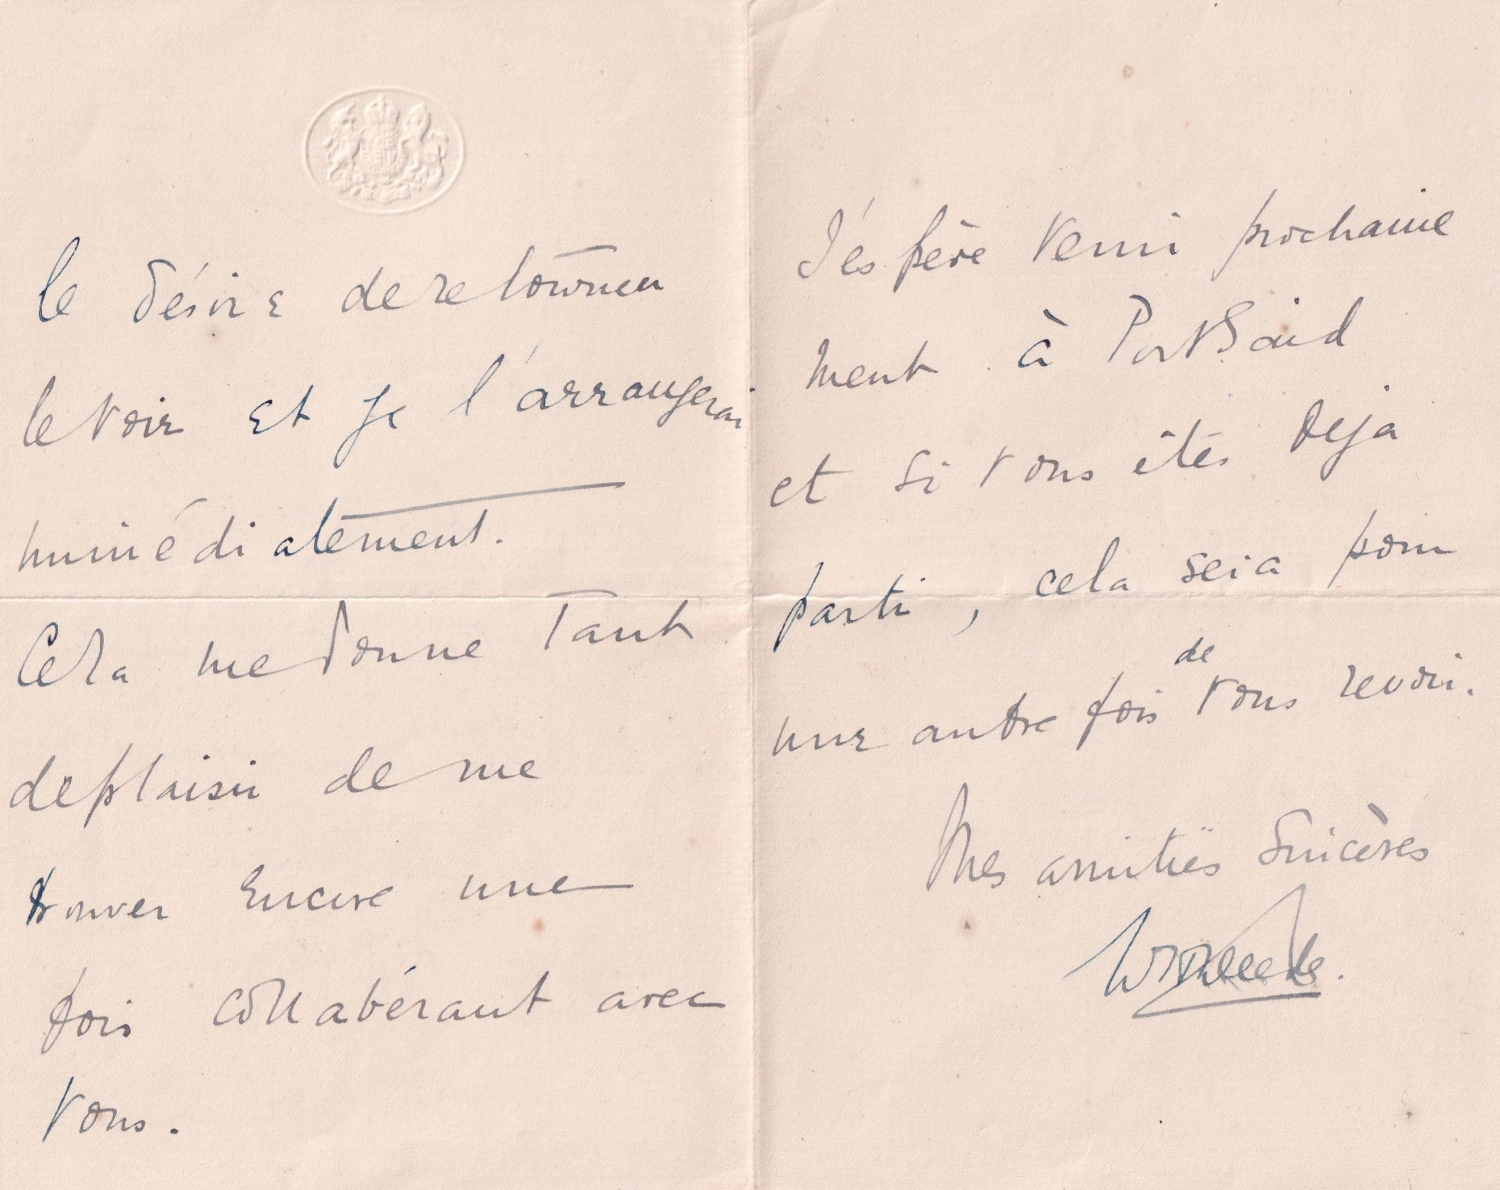 le désire de retourner
le voir et je l'arrangerai
immédiatement.
Cela me donne tant
de plaisir de me
trouver encore une
fois collabérant avec
vous.
J'éspère venir prochaine
ment à Port Said
et si vous êtes déja
parti, cela sera pour
une autre fois de vous revoir.
Mes amitiés sincères